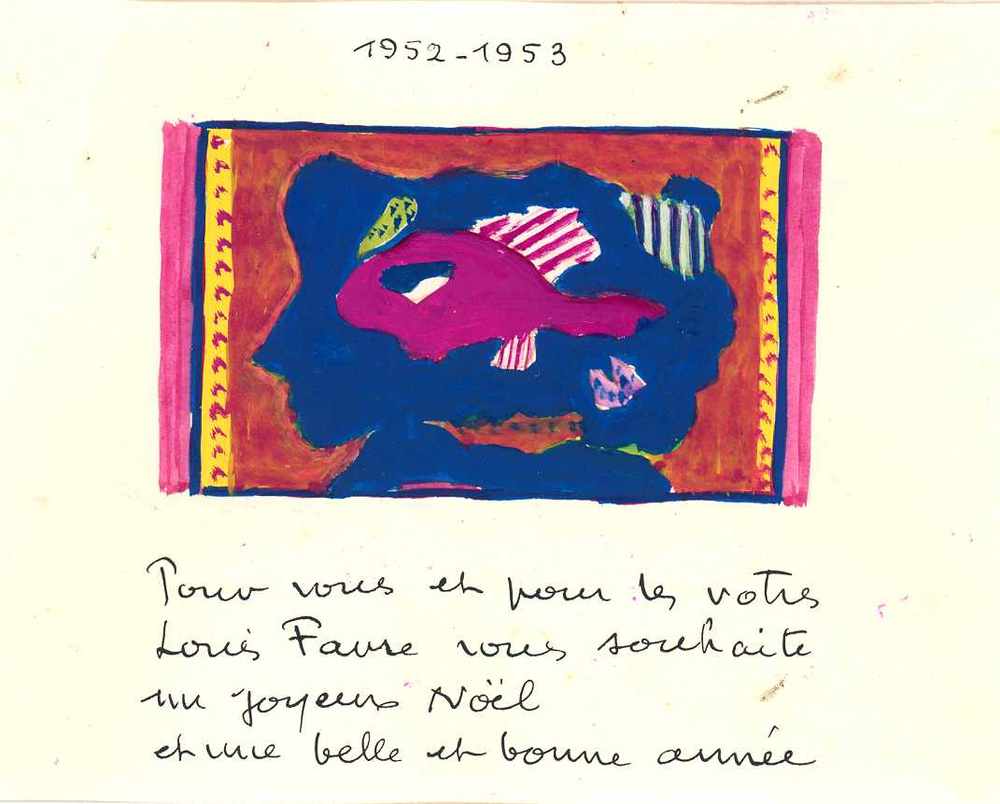 1952-1953
Pour vous et pour les votres
Louis Favre vous souhaite
un joyeux Nöël
et une belle et bonne année